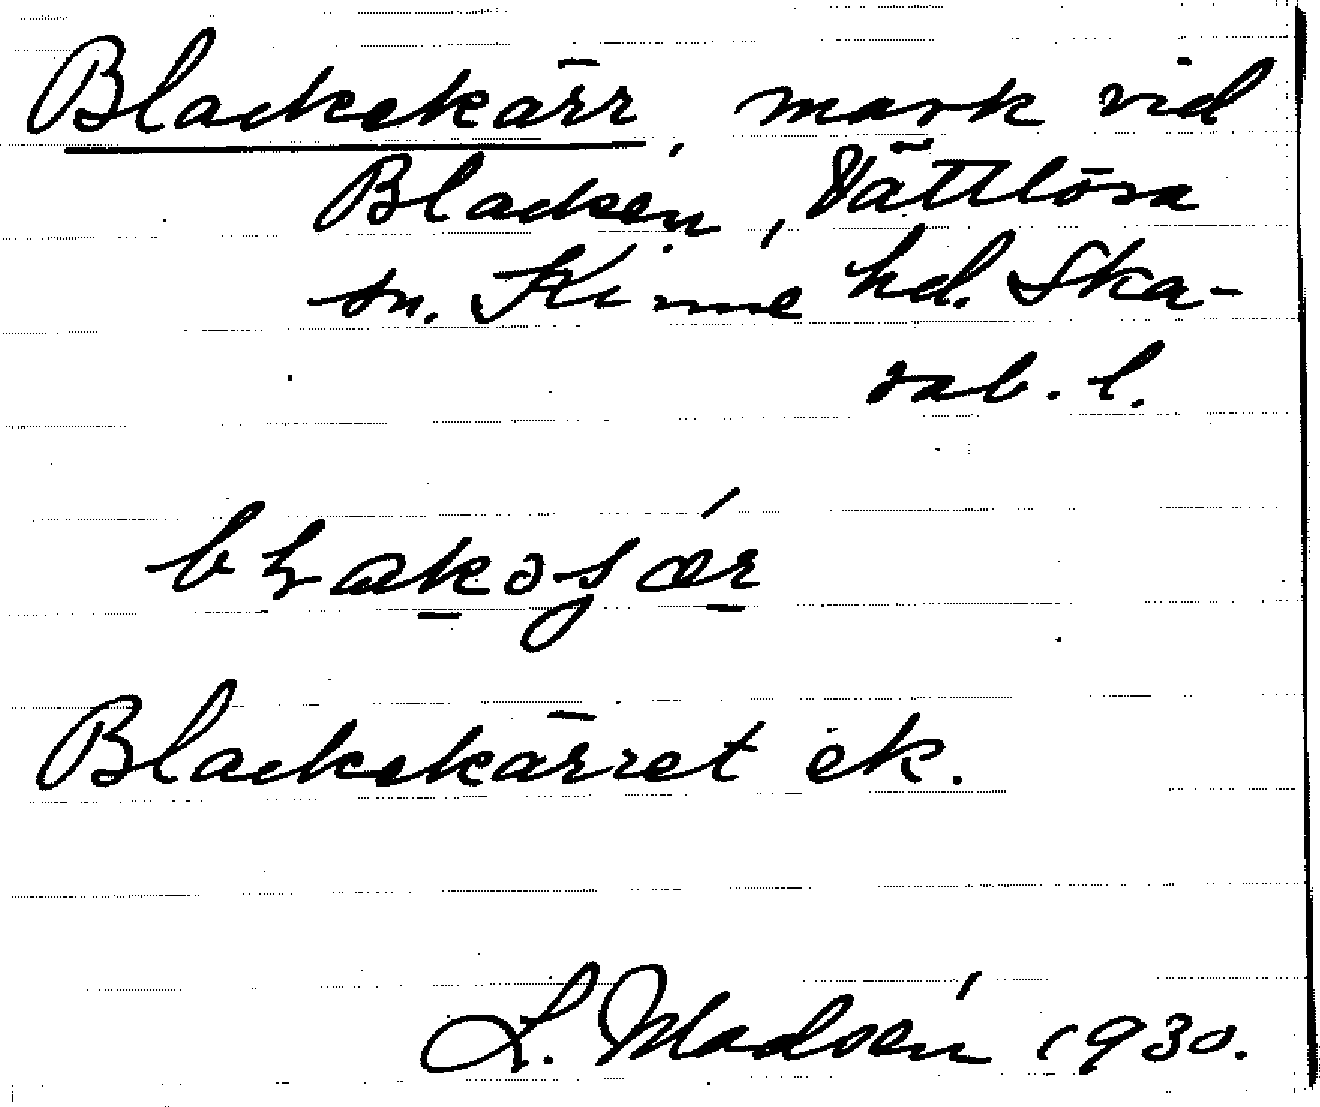 Blackekärr, mark vid
Blacken, Vättlösa
sn. Kinne hd. Ska-
rab. l.
Blackekärret ek.
L. Modéen 1930.